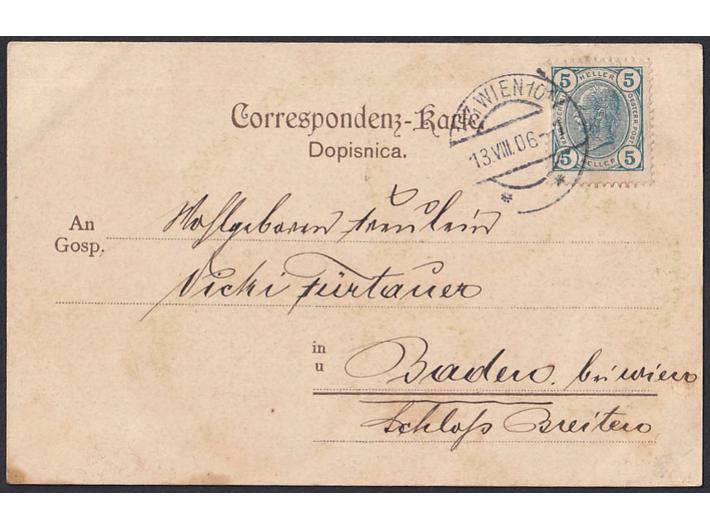 Correspondenz-Karte.
Dopisnica.
WIEN 10
13.VIII.06
5 HELLER 5
OESTERR. POST
5 HELLER 5
An
Gosp.
Wohlgeboren Fräulein
Vicki Fürtauer
in
u
Baden bei Wien
Schloß Breiten